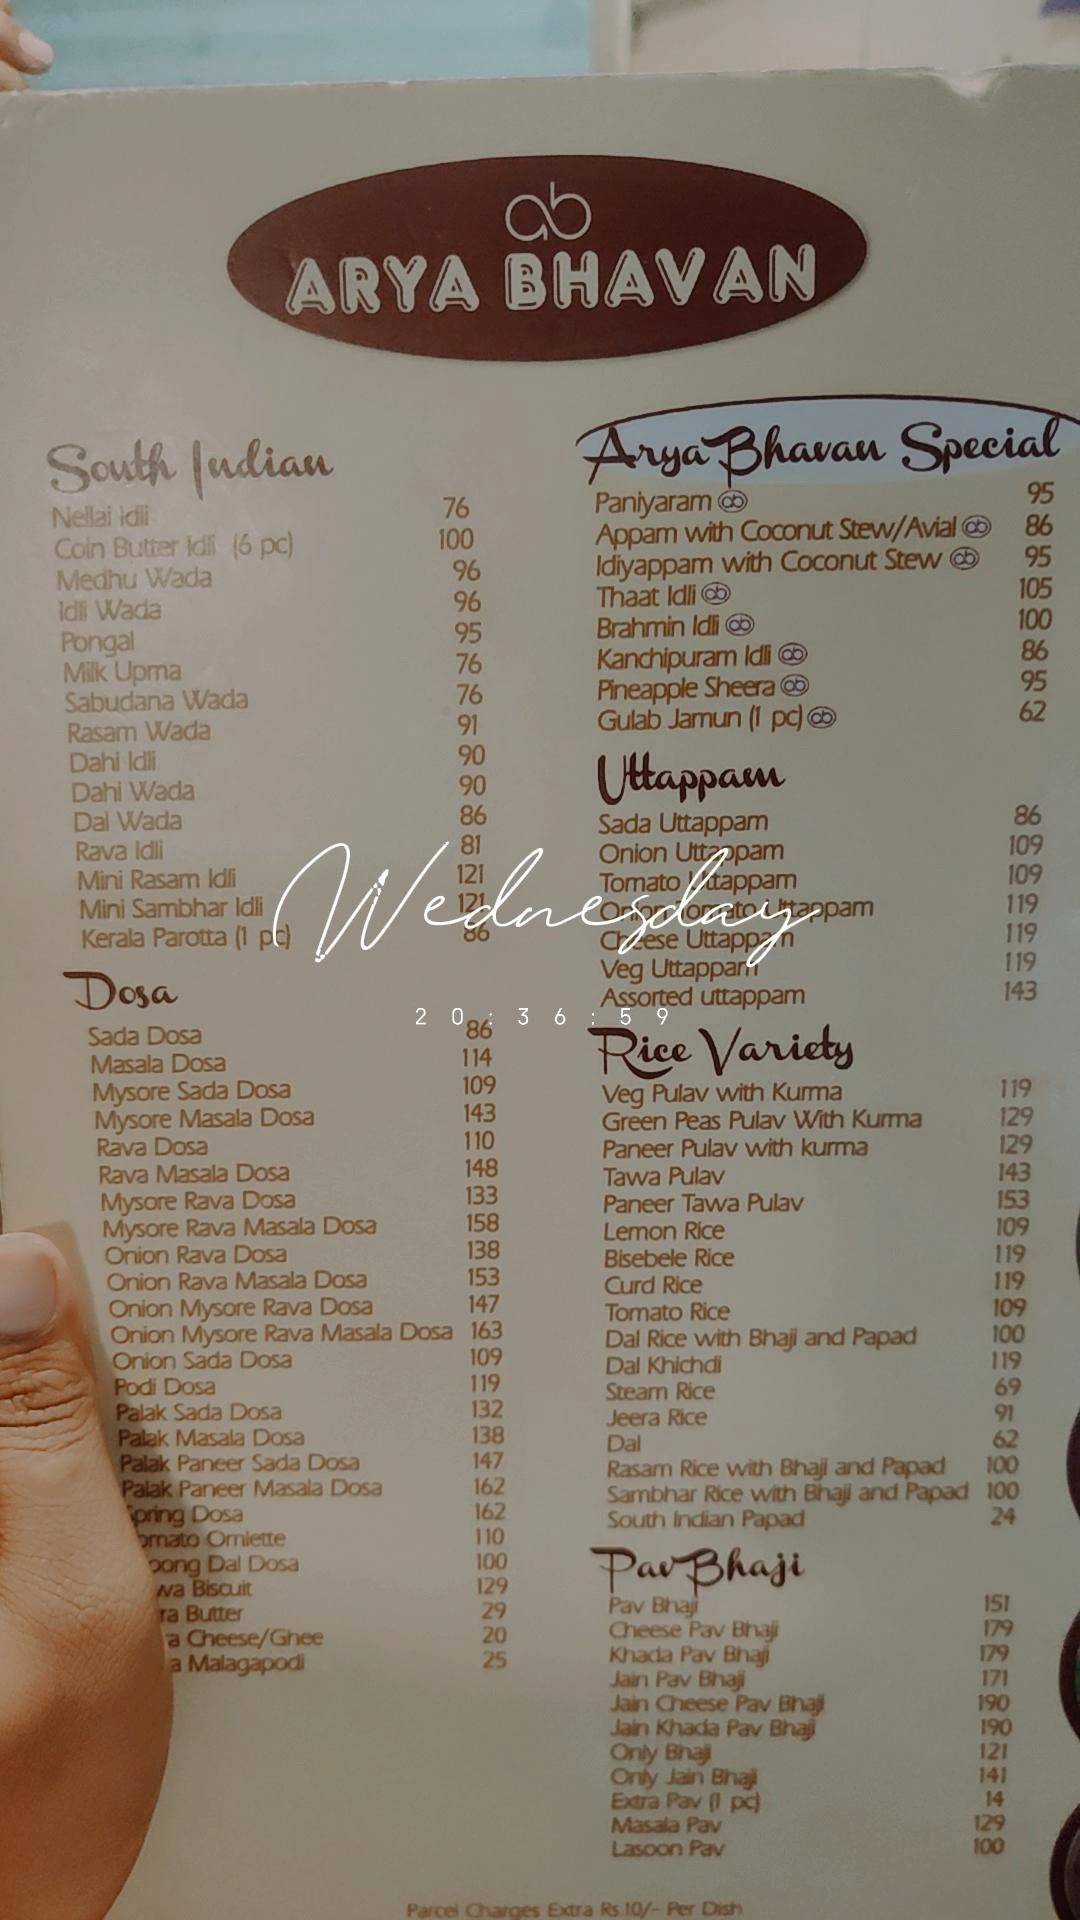 ab
ARYA BHAVAN
South Indian
Nellai Idli 76
Coin Butter Idli (6 pc) 100
Medhu Wada 96
Idli Wada 96
Pongal 95
Milk Upma 76
Sabudana Wada 76
Rasam Wada 91
Dahi Idli 90
Dahi Wada 90
Dal Wada 86
Rava Idli 81
Mini Rasam Idli 121
Mini Sambhar Idli 121
Kerala Parotta (1 pc) 86
Dosa
Sada Dosa 86
Masala Dosa 114
Mysore Sada Dosa 109
Mysore Masala Dosa 143
Rava Dosa 110
Rava Masala Dosa 148
Mysore Rava Dosa 133
Mysore Rava Masala Dosa 158
Onion Rava Dosa 138
Onion Rava Masala Dosa 153
Onion Mysore Rava Dosa 147
Onion Mysore Rava Masala Dosa 163
Onion Sada Dosa 109
Podi Dosa 119
Palak Sada Dosa 132
Palak Masala Dosa 138
Palak Paneer Sada Dosa 147
Palak Paneer Masala Dosa 162
Spring Dosa 162
omato Omlette 110
oong Dal Dosa 100
wa Biscuit 129
ra Butter 29
a Cheese/Ghee 20
a Malagapodi 25
Arya Bhavan Special
Paniyaram ab 95
Appam with Coconut Stew/Avial ab 86
Idiyappam with Coconut Stew ab 95
Thaat Idli ab 105
Brahmin Idli ab 100
Kanchipuram Idli ab 86
Pineapple Sheera ab 95
Gulab Jamun (1 pc) ab 62
Uttappam
Sada Uttappam 86
Onion Uttappam 109
Tomato Uttappam 109
Onion Tomato Uttappam 119
Cheese Uttappam 119
Veg Uttappam 119
Assorted uttappam 143
Rice Variety
Veg Pulav with Kurma 119
Green Peas Pulav With Kurma 129
Paneer Pulav with kurma 129
Tawa Pulav 143
Paneer Tawa Pulav 153
Lemon Rice 109
Bisebele Rice 119
Curd Rice 119
Tomato Rice 109
Dal Rice with Bhaji and Papad 100
Dal Khichdi 119
Steam Rice 69
Jeera Rice 91
Dal 62
Rasam Rice with Bhaji and Papad 100
Sambhar Rice with Bhaji and Papad 100
South Indian Papad 24
Pav Bhaji
Pav Bhaji 151
Cheese Pav Bhaji 179
Khada Pav Bhaji 179
Jain Pav Bhaji 171
Jain Cheese Pav Bhaji 190
Jain Khada Pav Bhaji 190
Only Bhaji 121
Only Jain Bhaji 141
Extra Pav (1 pc) 14
Masala Pav 129
Lasoon Pav 100
Parcel Charges Extra Rs.10/- Per Dish
Wednesday
20:36:59